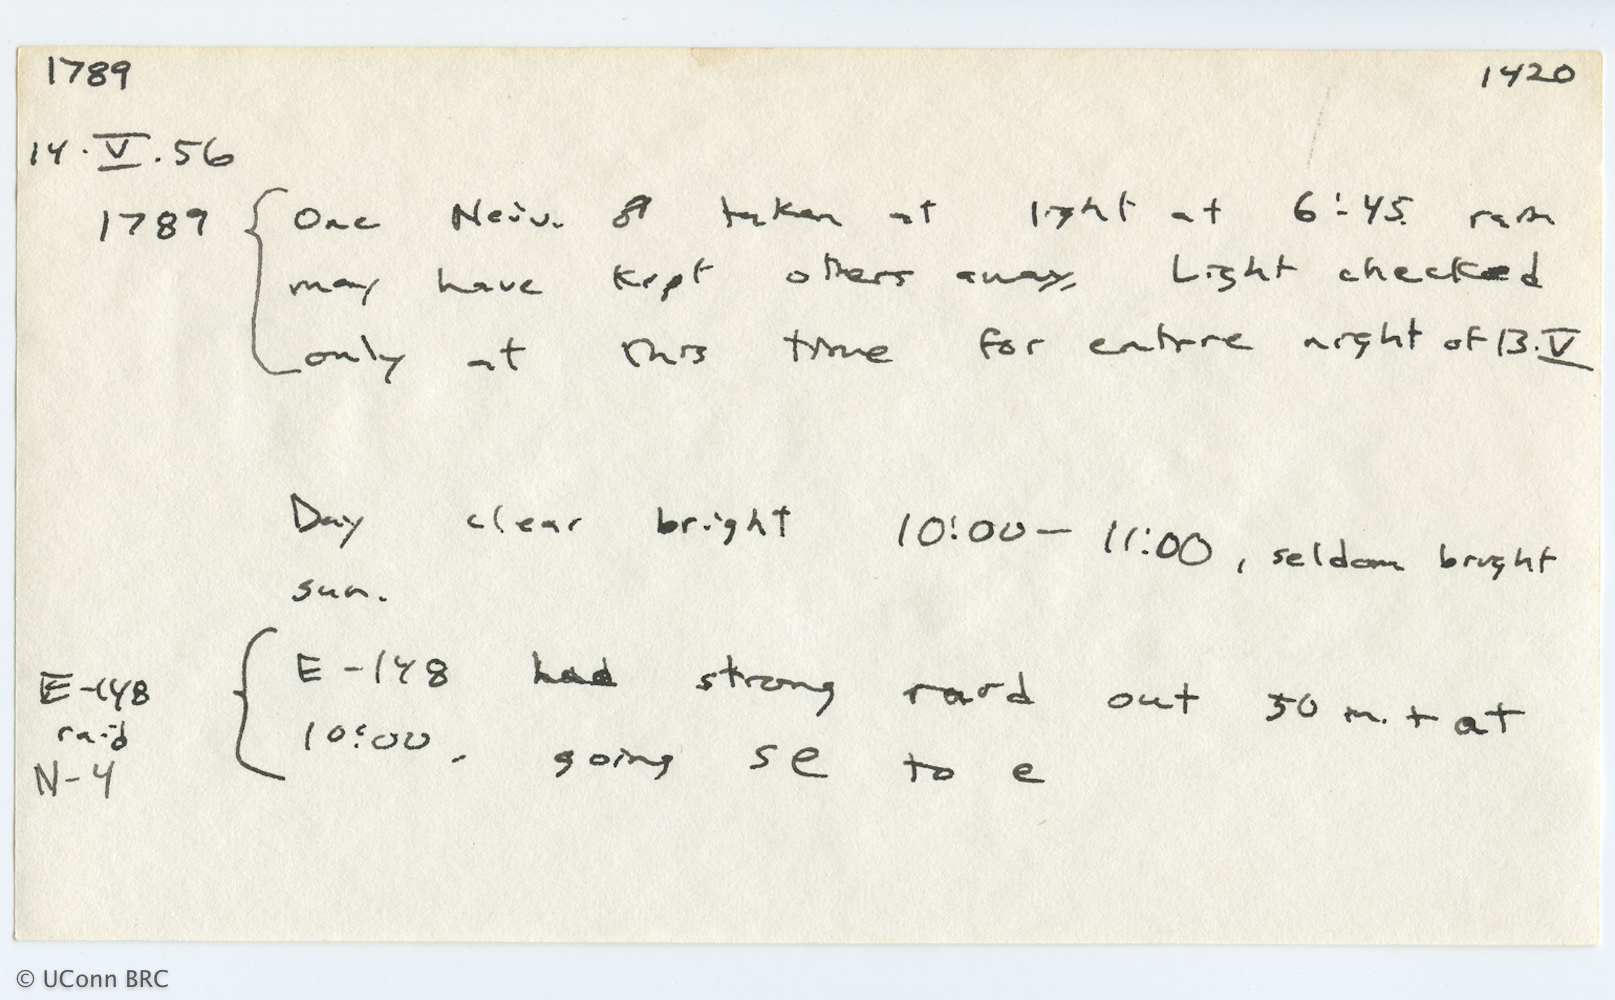 1789 1420
14·V·56
1789 One Neiv. ♂ taken at light at 6:45. rain
may have kept others away, Light checked
only at this time for entire night of 13.V
Day clear bright 10:00 — 11:00, seldom bright
sun.
E-148 raid N-4
E-148 had strong raid out 50 m. + at
10:00. going se to e
© UConn BRC